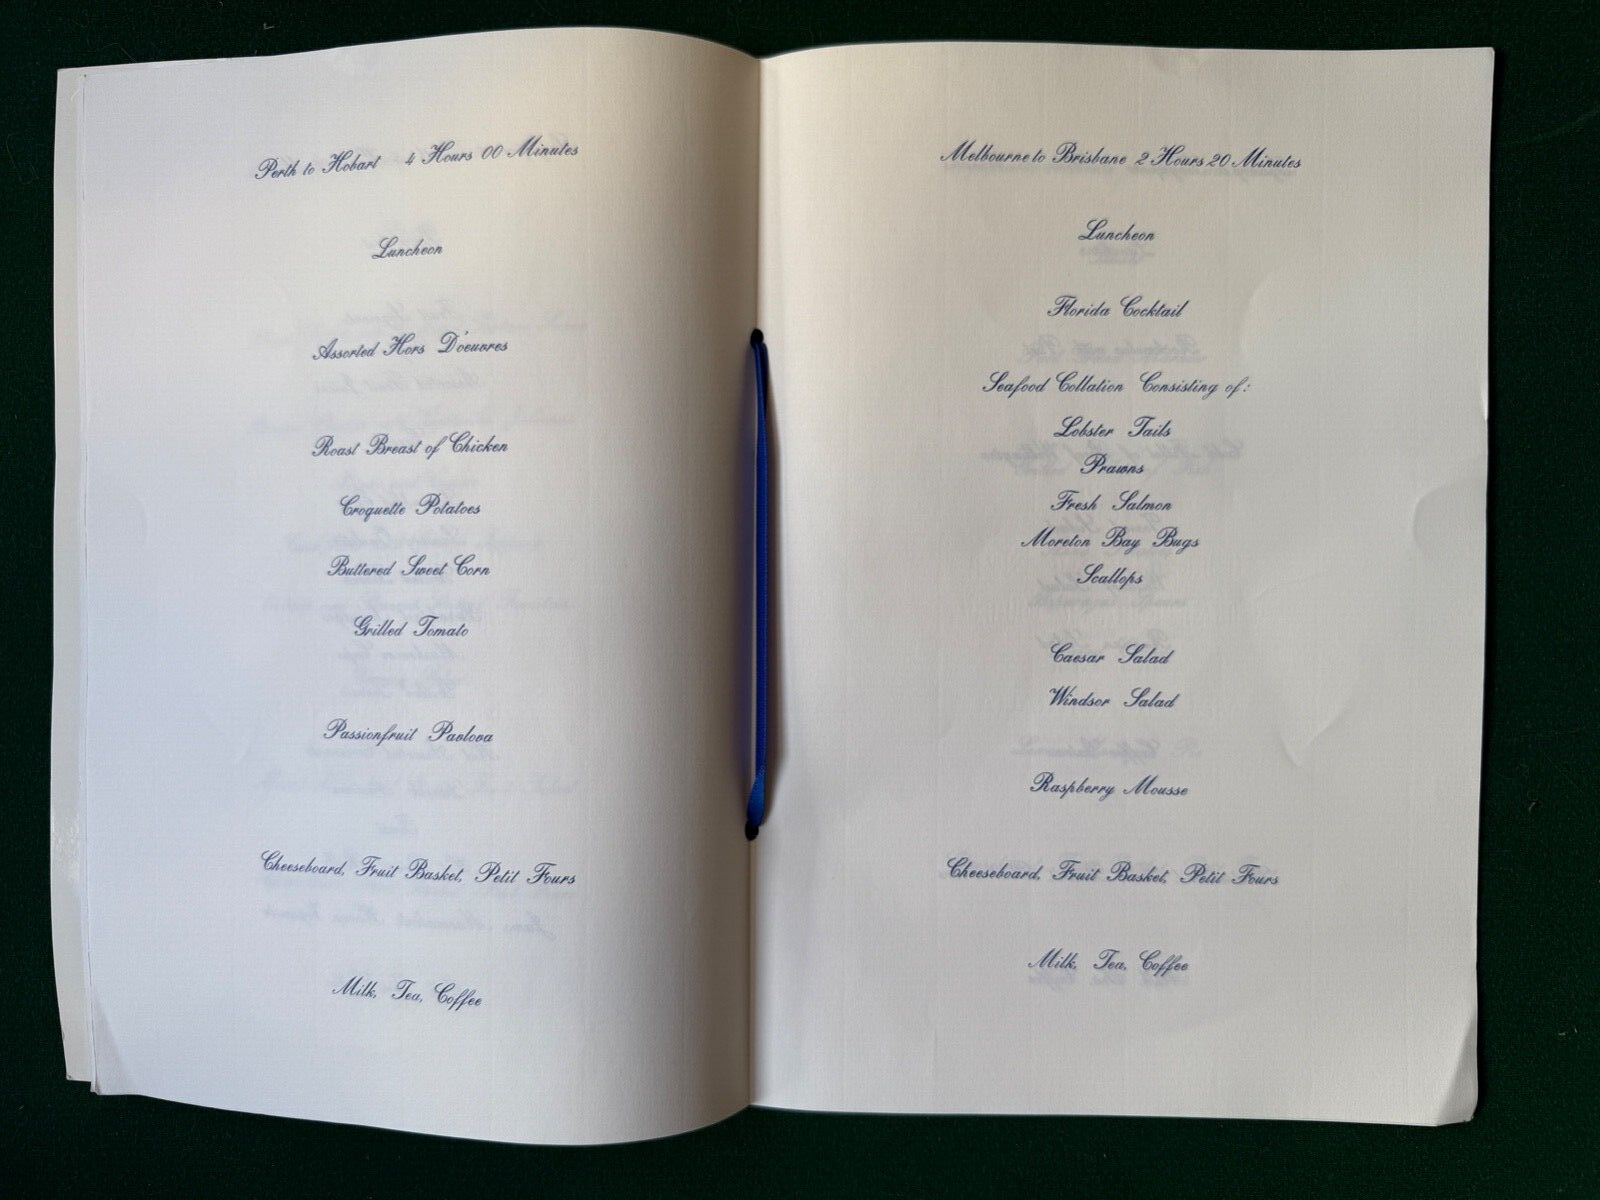 Perth to Hobart 4 Hours 00 Minutes
Luncheon
Assorted Hors D'oeuvres
Roast Breast of Chicken
Croquette Potatoes
Buttered Sweet Corn
Grilled Tomato
Passionfruit Pavlova
Cheeseboard, Fruit Basket, Petit Fours
Milk, Tea, Coffee
Melbourne to Brisbane 2 Hours 20 Minutes
Luncheon
Florida Cocktail
Seafood Collation Consisting of:
Lobster Tails
Prawns
Fresh Salmon
Moreton Bay Bugs
Scallops
Caesar Salad
Windsor Salad
Raspberry Mousse
Cheeseboard, Fruit Basket, Petit Fours
Milk, Tea, Coffee